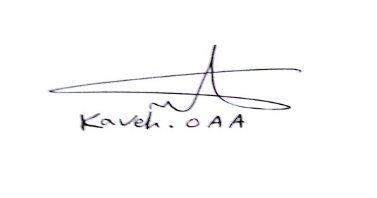 Kaveh. OAA